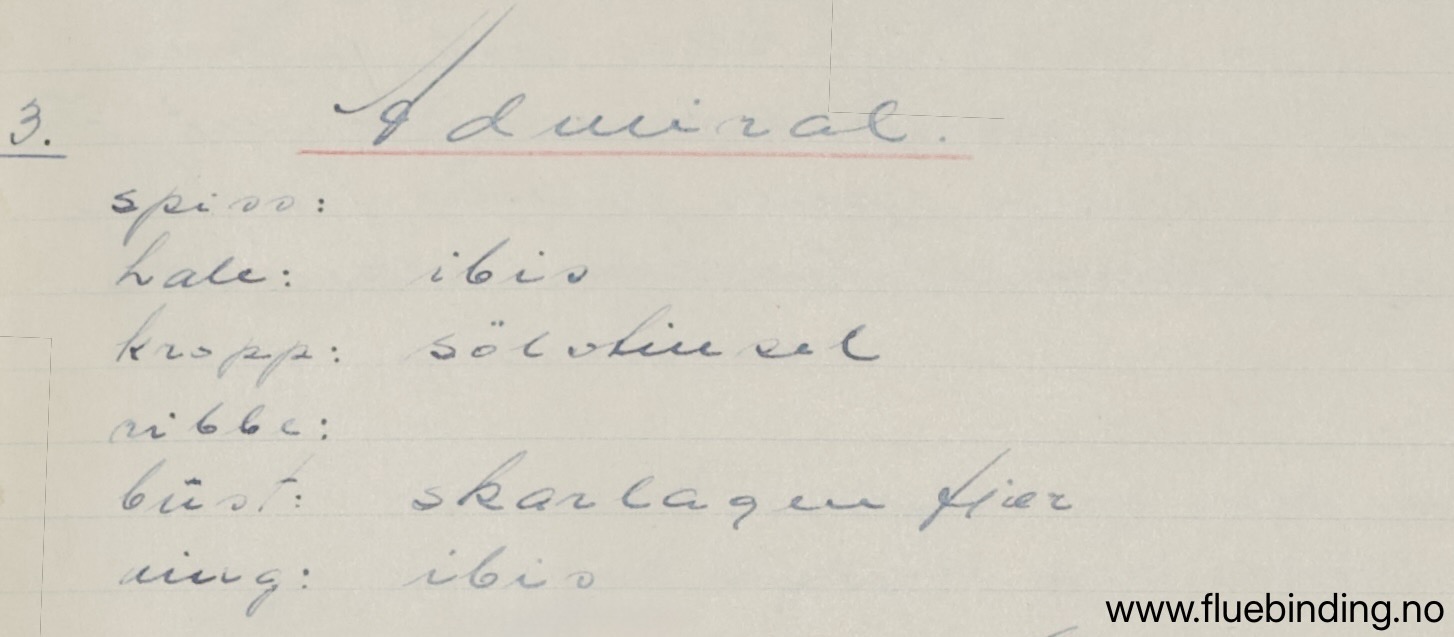 3. Admiral.
spiss:
hale: ibis
kropp: sölvtinsel
ribbe:
büst: skarlagen fjær
ving: ibis
www.fluebinding.no